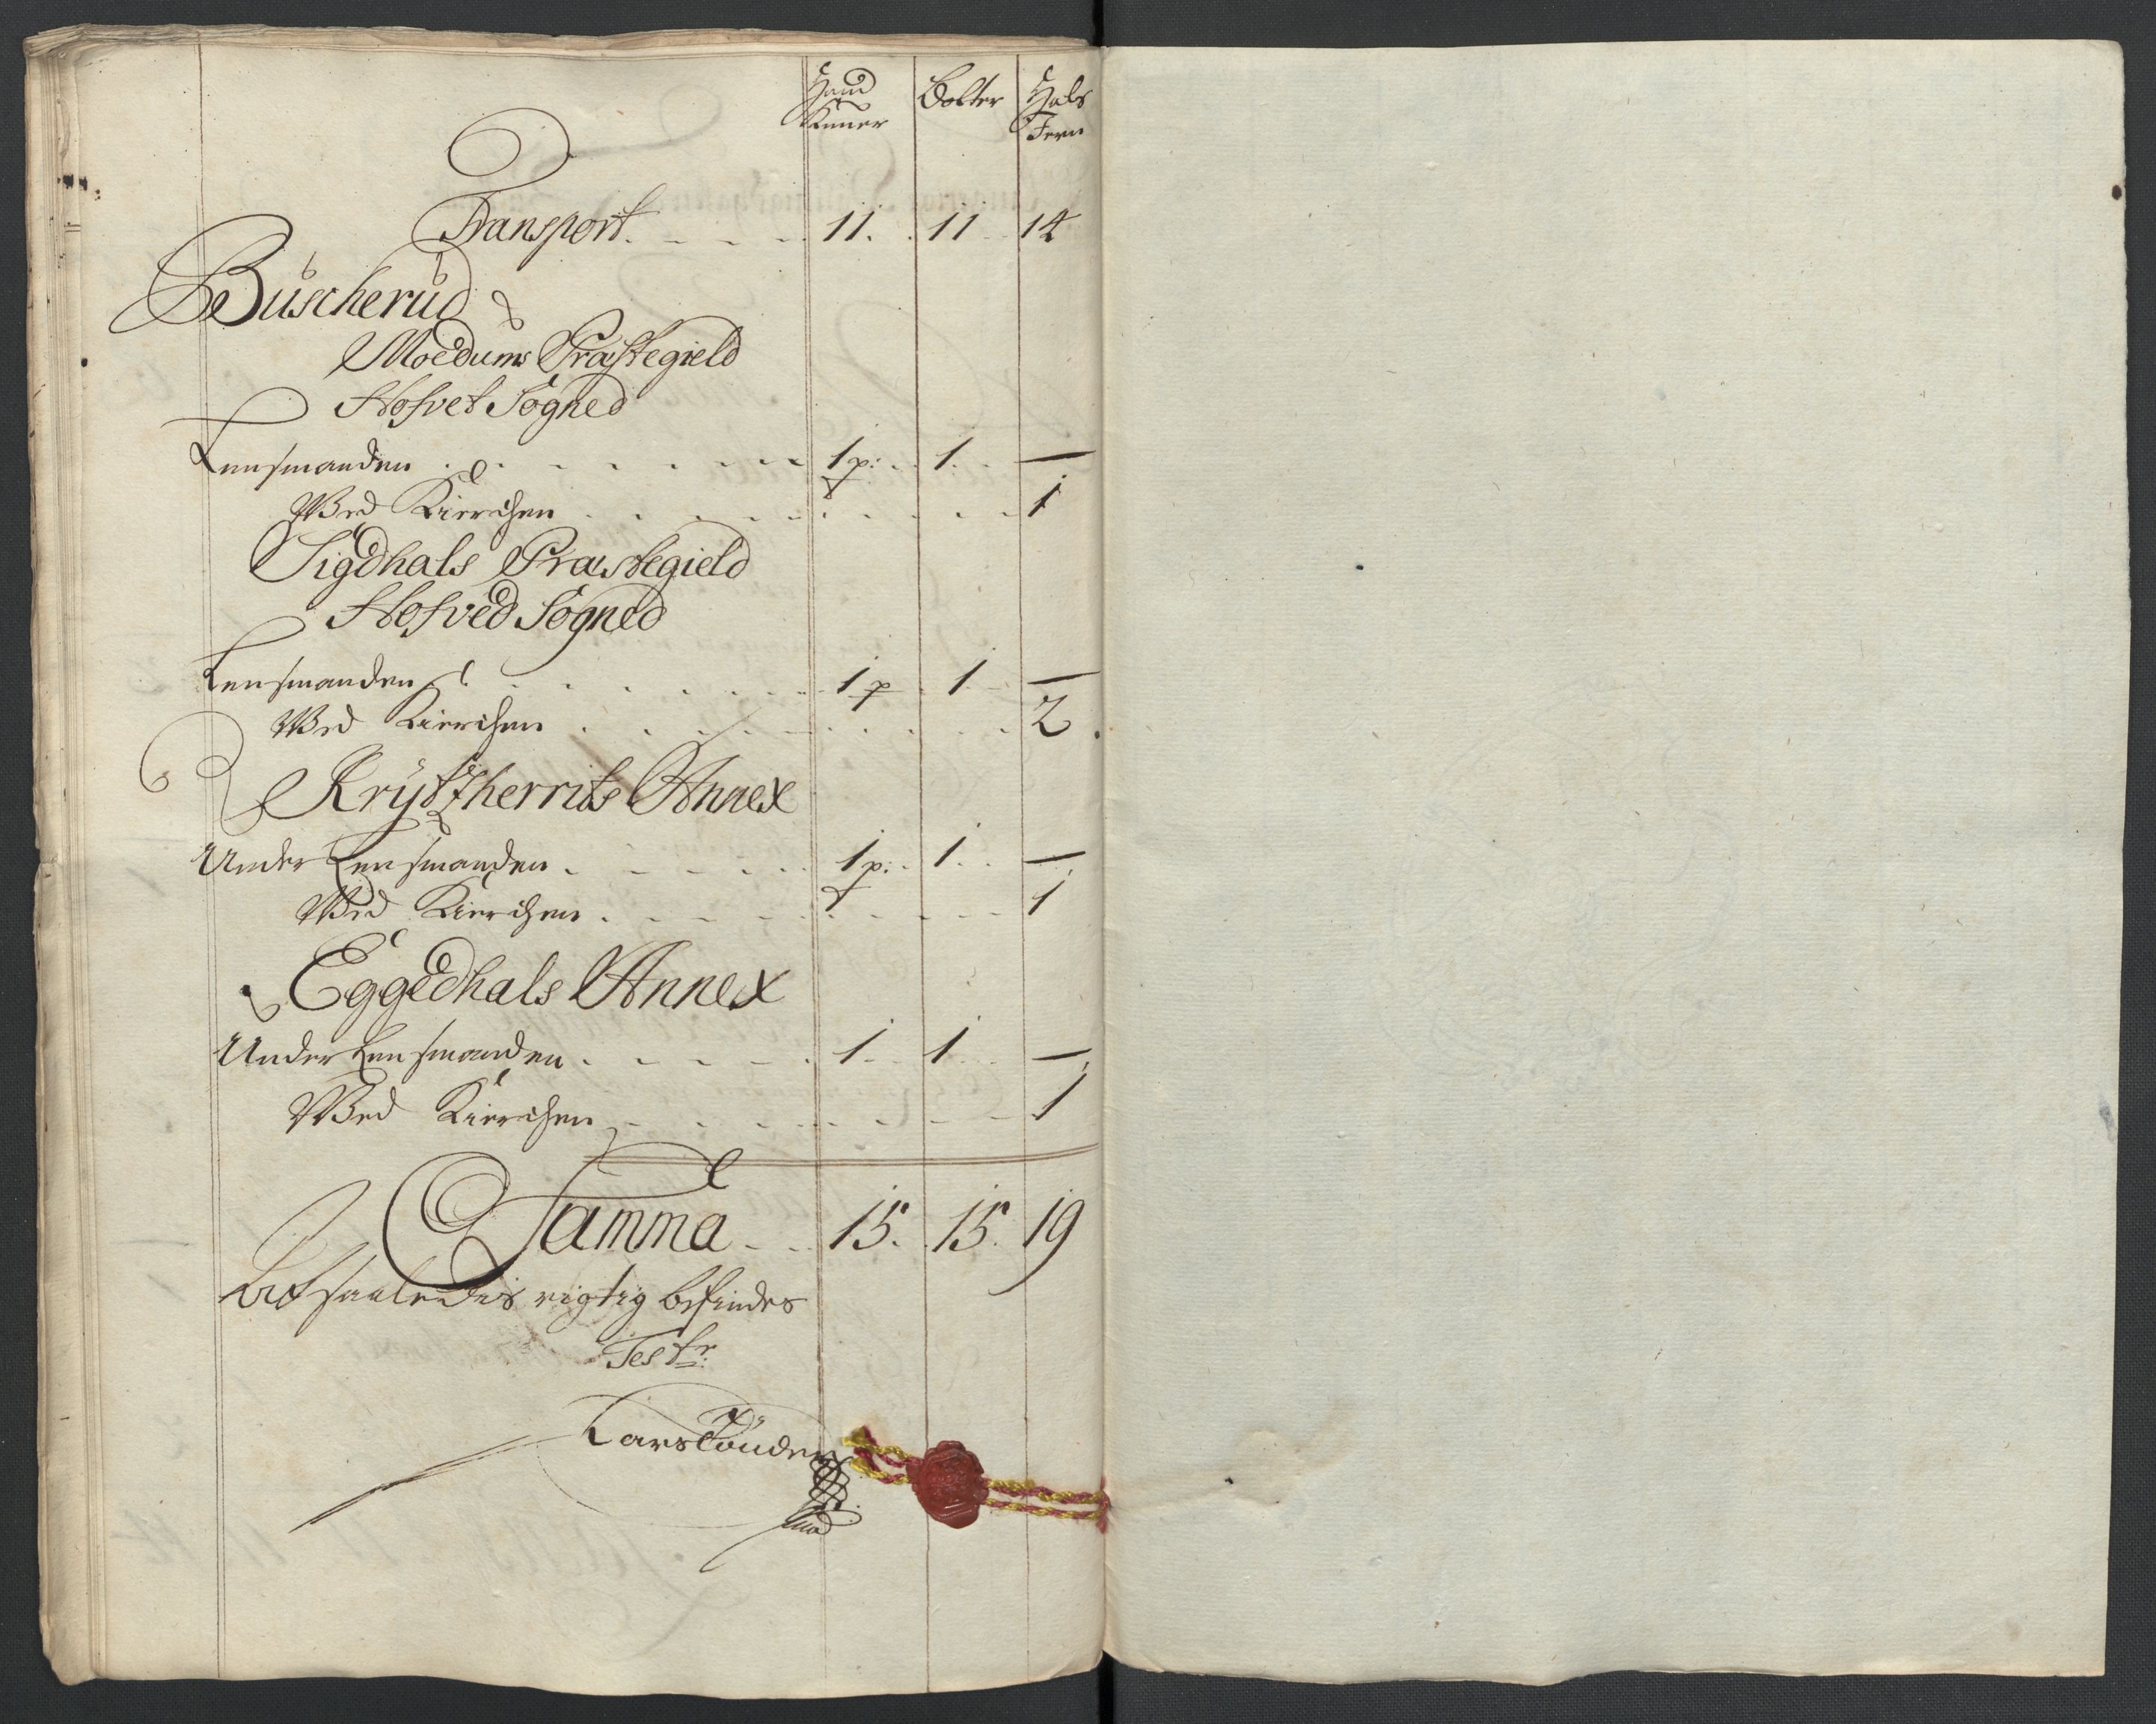 Haand Bolter Hals
Jern
Transport 11. 11 14
Buscherud
Moedums Præstegield
Hofvet Sogned
Lensmanden 1 p: 1. —
Ved Kierchen 1
Sigdhals Præstegield
Hofved Sogned
Lensmanden 1 p 1 —
Ved Kierchen 2
Kryttzherrits Annex
Under Lensmanden 1 p: 1. —
Ved Kierchen 1
Eggedhals Annex
Under Lensmanden 1 1 —
Ved Kierchen 1
Summa 15. 15. 19
saaledes rigtig befindes
Test: